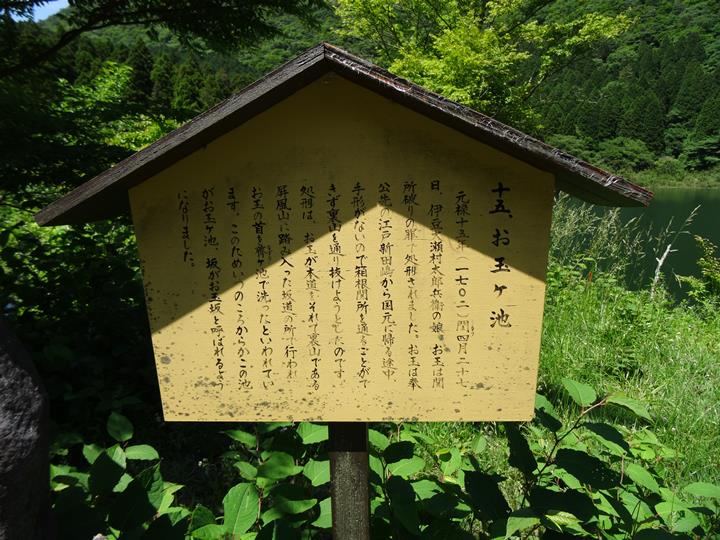 十五、お玉ヶ池
元禄十五年(一七〇二)閏四月二十七
日、伊豆 瀬村太郎兵衛の娘、お玉は関
所破りの罪で処刑されました。お玉は奉
公先の江戸新田島から国元に帰る途中、
手形がないので箱根関所を通ることがで
きず裏山を通り抜けようとしたのです。
処刑は、お玉が本道をそれて裏山である
屏風山に踏み入った坂道の所で行われ
お玉の首を ヶ池で洗ったといわれてい
ます。このためいつのころからかこの池
がお玉ヶ池、坂がお玉坂と呼ばれるよう
になりました。